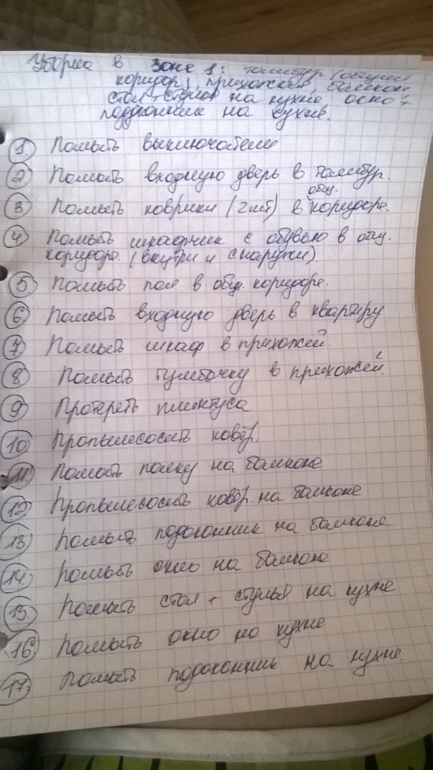 Уборка в зоне 1: тамбур (общий
коридор), прихожая, балкон,
стол + стулья на кухне, окно +
подоконник на кухне.
1 Помыть выключатели
2 Помыть входную дверь в тамбур.
3 Помыть коврики (2 шт) в общ. коридоре.
4 Помыть шкафчик с обувью в общ.
коридоре (внутри и снаружи)
5 Помыть пол в общ. коридоре.
6 Помыть входную дверь в квартиру
7 Помыть шкаф в прихожей
8 Помыть тумбочку в прихожей.
9 Протереть плинтуса
10 Пропылесосить ковёр.
11 Помыть полку на балконе
12 Пропылесосить ковёр на балконе
13 Помыть подоконник на балконе
14 Помыть окно на балконе
15 Помыть стол + стулья на кухне
16 Помыть окно на кухне
17 Помыть подоконник на кухне